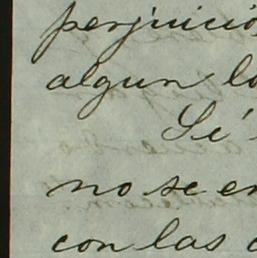 perjuicio
algun lo
Sé
no se en
con las c